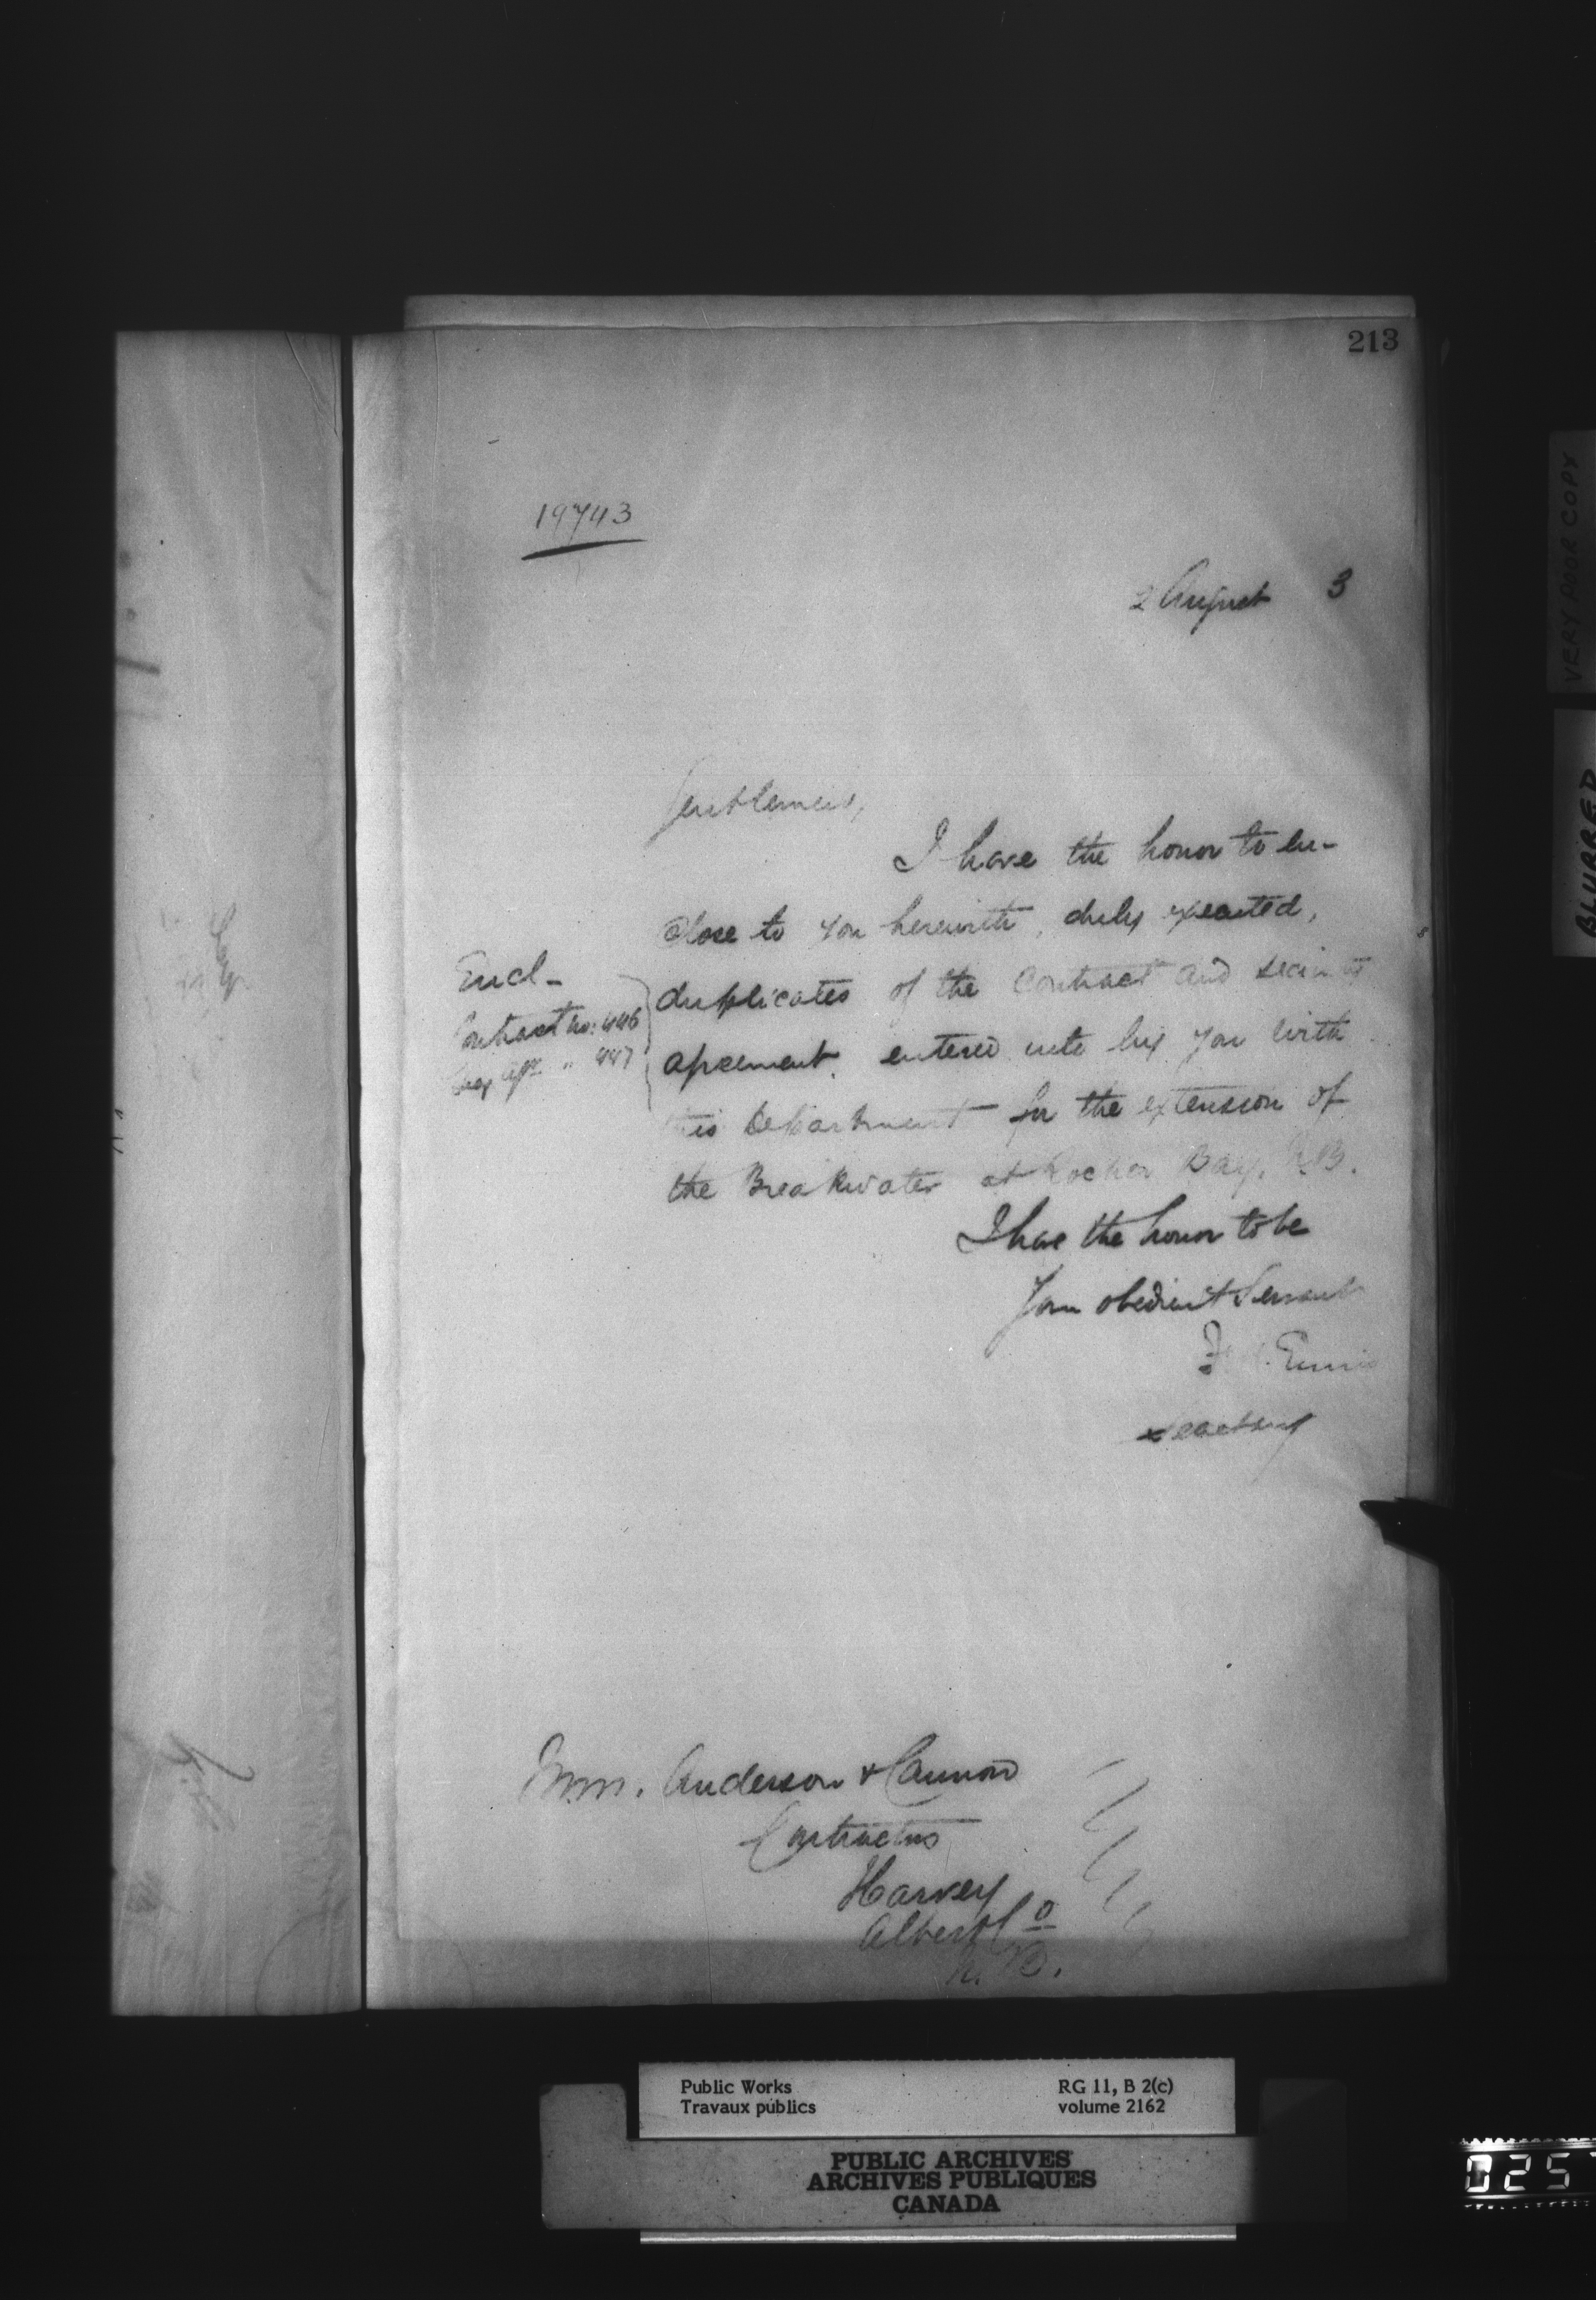 213
19743
2 August 3
Gentlemen,
I have the honor to en-
close to you herewith, duly executed,
duplicates of the Contract and Security
agreement, entered into by you with
this Department for the extension of
the Breakwater at Rocher Bay, N.B.
Encl-
Contract No: 446
" 447
I have the honor to be
Your obedient Servant
Ennis
Secretary
Messrs. Anderson & Cannon
Contractors
Harvey
Albert Co
N.B.
VERY POOR COPY
BLURRED
Public Works
Travaux publics
RG 11, B 2(c)
volume 2162
PUBLIC ARCHIVES
ARCHIVES PUBLIQUES
CANADA
025